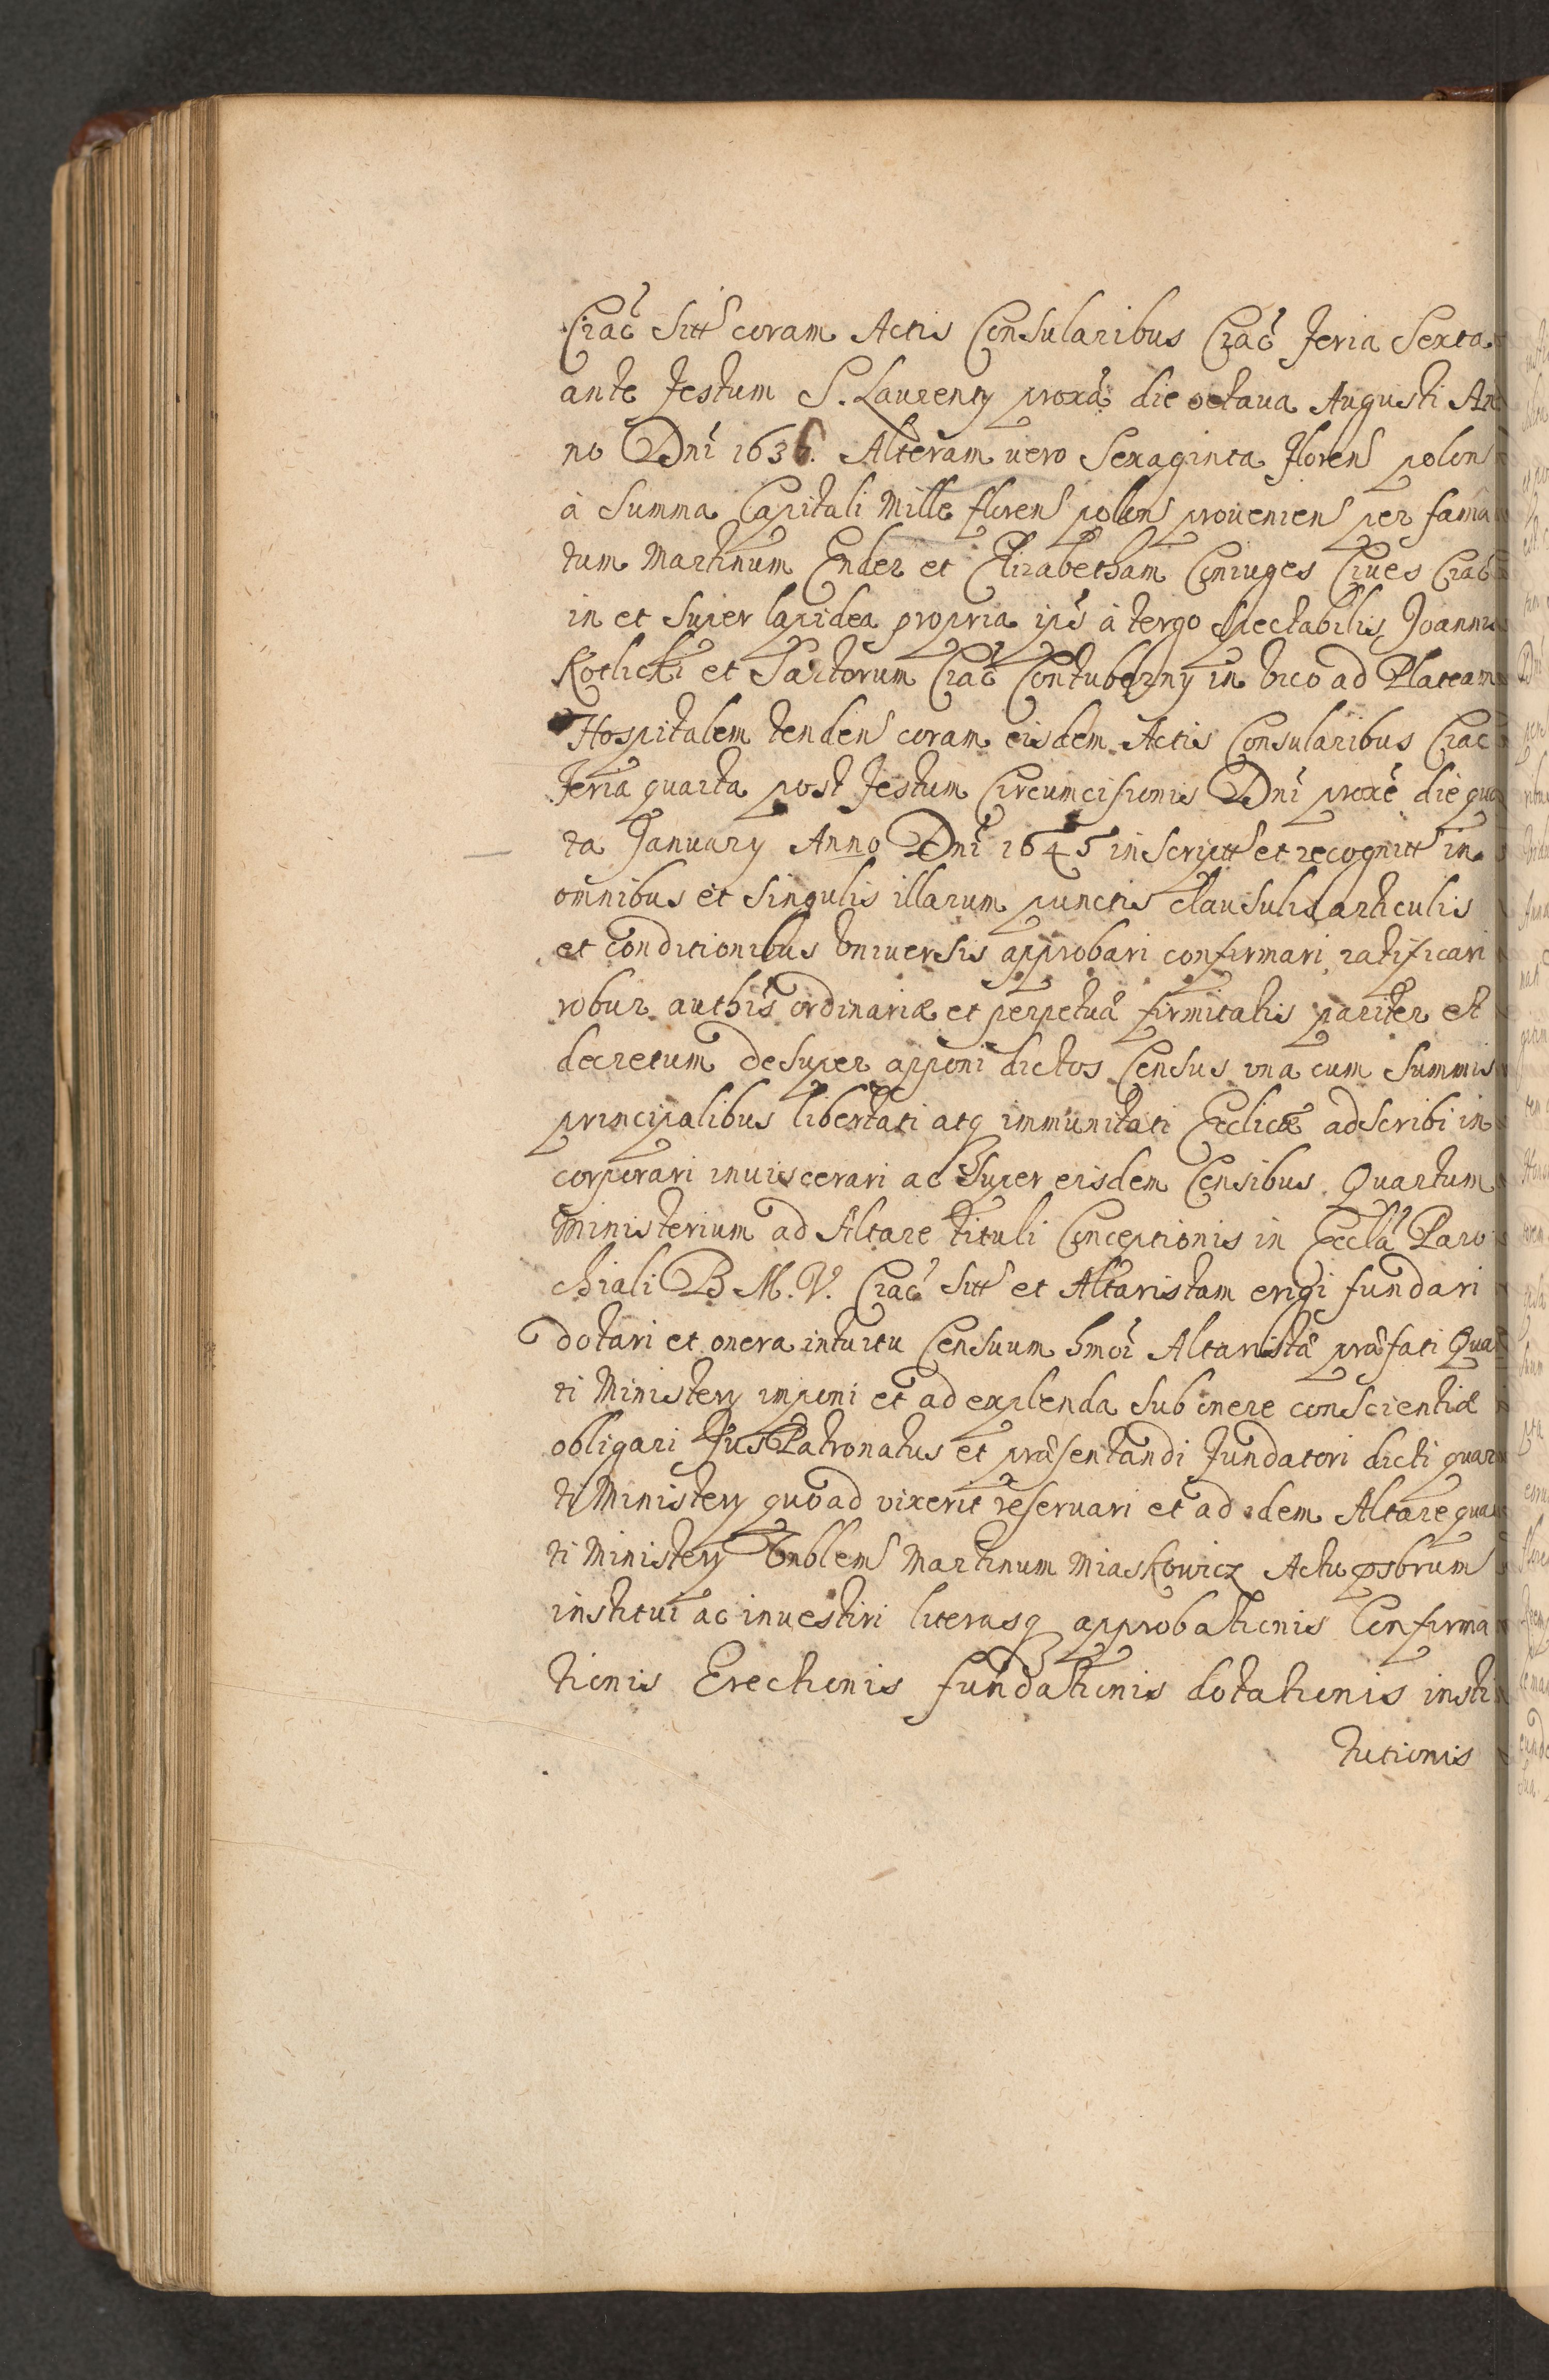 Crac̃ Sitt coram Actis Consularibus Crac̃ Feria Sexta
ante Festum S. Laurentÿ proxã die octaua Augusti An
no Dnĩ 1636. Alteram uero Sexaginta Floren polon
à Summa Capitali Mille floren polon prouenien per fama
tum Martinum Ender et Elizabetham Coniuges Ciues Crac̃
in et Super lapidea propria ips̃ à tergo Spectabilis Joannis
Kotlicki et Sartorum Crac̃ Contubernÿ in vico ad Plateam
Hospitalem tenden coram eisdem Actis Consularibus Crac
Feria quarta post Festum Circumcisionis Dnĩ proxẽ die qua
ta Januarÿ Anno Dnĩ 1645 inscriptt et recognitt in
omnibus et Singulis illarum punctis clausulis articulis
et conditionibus vniuersis approbari confirmari ratificari
robur authis̃ ordinariæ et perpetuã firmitatis pariter et
decretum desuper apponi dictos Census vna cum Summis
principalibus libertati atq immunitati Ecclicæ adscribi in
corporari inuiscerari ac Super eisdem Censibus Quartum
Ministerium ad Altare tituli Conceptionis in Ecclã Paro
chiali B. M. V. Crac̃ Sitt et Altaristam erigi fundari
dotari et onera intuitu Censuum hmoĩ Altaristã præfati Quar
ti Ministerÿ imponi et ad explenda Sub onere conscientiæ
obligari Jus Patronatus et præsentandi Fundatori dicti quar
ti Ministerÿ quoad vixerit reseruari et ad idem Altare quar
ti Ministerÿ Vnblem Martinum Miaskowicz Actu psbrum
institui ac inuestiri literasq approbationis Confirma
tionis Erectionis fundationis dotationis insti
tutionis